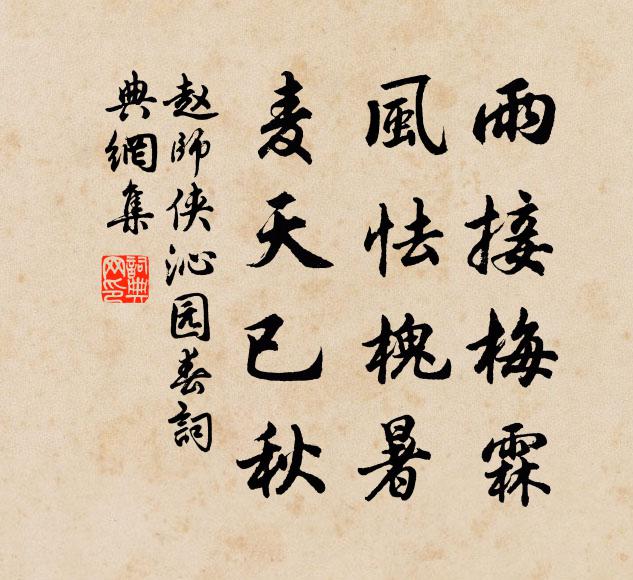 雨接梅霖
風怯槐暑
麦天已秋
赵師侠沁园春詞
典網集
詞典网印